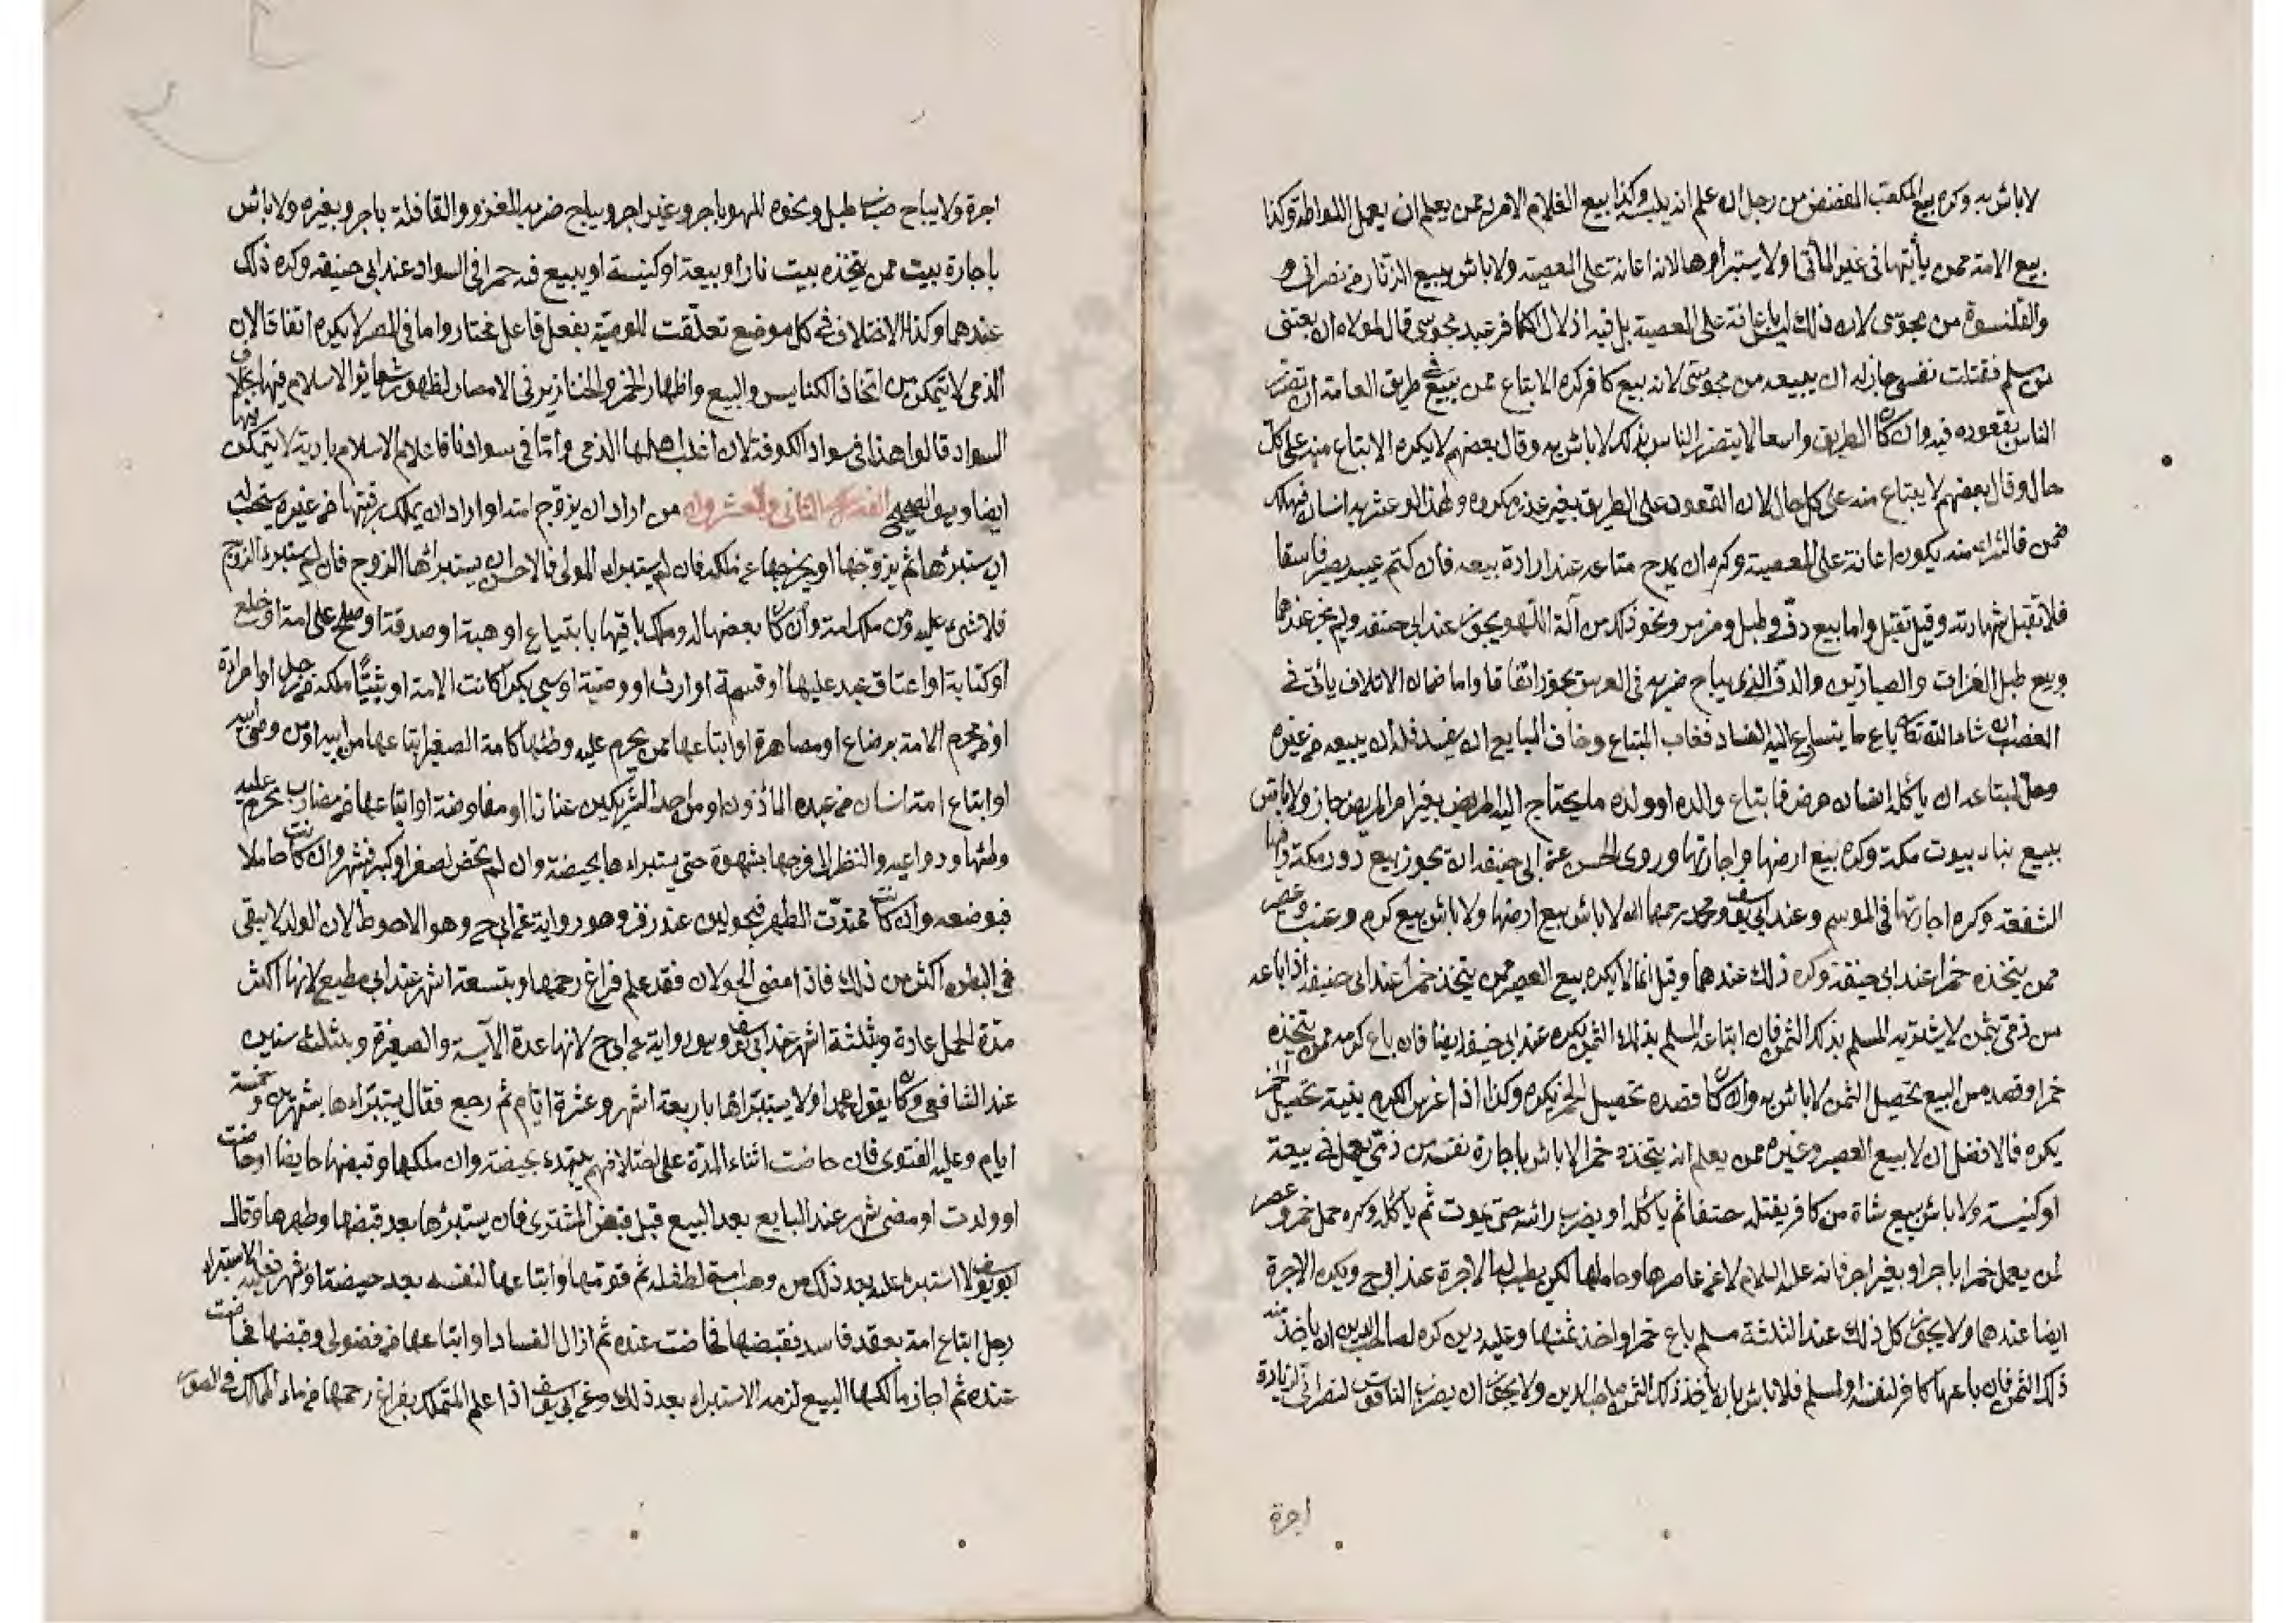 لا باش به وكره بيع المكعب المفضض من رجل ان علم انه يلبسه وكذا بيع الغلام الامرد ممن يعلم ان يعمل اللواطة وكذا
بيع الامة ممن يأتيها في غير المأتى او لا يستبرأوها لانه اعانة على المعصية ولا باش ببيع الزنار من نصراني و
والقلنسوة من مجوسي لان ذلك ليس باعانة على المعصية بل فيه اذلال الكافر عبد مجوسي قال لمولاه ان بعتني
من مسلم فقتلت نفسي جاز له ان يبيعه من مجوسي لانه بيع كافر كره الابتاع ممن يبيع في طريق العامة ان تضرر
الناس بقعوده فيه وان كان الطريق واسعا لا يتضرر الناس بذلك لا باش به وقال بعضهم لا يكره الابتاع منه على كل
حال وقال بعضهم لا يبتاع منه على كل حال لان القعود على الطريق بغير عذر مكروه ولهذا لو عثر به انسان فهلك
ضمن فالشراء منه يكون اعانة على المعصية وكره ان يمدح متاعه عند ارادة بيعه فان كتم عيبه يصير فاسقا
فلا تقبل شهادته وقيل تقبل واما بيع دف وطبل ومزمر ونحو ذلك من آلة اللهو يجوز عند ابي حنيفه ولم يجز عندهما
وبيع طبل الغزات والصيادين والدف الذي يباح ضربه في العرس يجوز اتفاقا واما ضمان الاتلاف يأتي في
الغصب ان شاء الله تعالى باع ما يتسارع اليه الفساد فغاب المبتاع وخاف البايع ان يفسد فله ان يبيعه من غيره
وحل لمبتاعه ان يأكله انسان مرض فابتاع والده او ولده ما يحتاج اليه المريض بغير امر المريض جاز ولا باش
ببيع بناء بيوت مكة وكره بيع ارضها واجارتها وروى الحسن عن ابي حنيفه انه يجوز بيع دور مكة وفيها
الشفعة وكره اجارتها في الموسم وعند ابي يوسف ومحمد رحمهما الله لا باش ببيع ارضها ولا باش ببيع كرم وعنب وعصير
ممن يتخذه خمرا عند ابي حنيفة وكره ذلك عندهما وقيل انما لا يكره بيع العصير ممن يتخذ خمرا عند ابي حنيفه اذا باعه
من ذمي بثمن لا يشتريه المسلم بذلك الثمن فان ابتاعه المسلم بذلك الثمن يكره عند ابي حنيفه ايضا فان باع كرمه ممن يتخذه
خمرا وقصده من البيع تحصيل الثمن لا باش به وان كان قصده تحصيل الخمر يكره وكذا اذا غرس الكرم بنية تحصيل الخمر
يكره فالافضل ان لا يبيع العصير وغيره ممن يعلم انه يتخذه خمرا لا باش باجارة نفسه من ذمي يعمل في بيعة
او كنيسة ولا باش ببيع شاة من كافر يقتله حتفا ثم يأكله او يضرب رائسه حتى يموت ثم يأكله وكره حمل خمر وعصر
لمن يعمل خمرا باجر او بغير اجر فانه عليه السلام لا عن عاصرها وحاملها لكن يطيب له الاجرة عند ابي ح ويكره الاجرة
ايضا عندهما ولا يجوز كل ذلك عند الثلثة مسلم باع خمرا واخذ ثمنها وعليه دين كره لصاحب الدين ان يأخذ منه
ذلك الثمن فان باعها كافر لنفسه او لمسلم فلا باش بان يأخذ ذلك الثمن صاحب الدين ولا يجوز ان يضرب الناقوس لنصراني لزيادة
اجرة
اجرة ولا يباح ضرب طبل ونحوه للهو باجر وغير اجر ويباح ضربه للغزو والقافلة باجر وبغيره ولا باش
باجارة بيت ممن يتخذه بيت نار او بيعة او كنيسة او يبيع فيه خمرا في السواد عند ابي حنيفه وكره ذلك
عندهما وكذا الاختلاف في كل موضع تعلقت المعصية بفعل فاعل مختار واما في المصر لا يكره اتفاقا لان
الذمي لا يتمكن من اتخاذ الكنايس والبيع واظهار الخمر والخنازير في الامصار لظهور شعائر الاسلام فيها بخلاف
السواد قالوا هذا في سواد الكوفة لان اغلب اهلها الذمي وأما في سوادنا فاعلام الاسلام بادية لا يتمكن فيها
ايضا وهو الصحيح الفصل الثاني والعشرون من اراد ان يزوج امته او اراد ان يملك رقبتها من غيره يستحب له
ان يستبرئها ثم يزوجها او يخرجها عن ملكه فان لم يستبرء المولى فالاحسن ان يستبرائها الزوج فان لم يستبرء الزوج
فلا شيء عليه ومن ملك امة وان كان بعضها له وملك باقيها بابتياع او هبة او صدقة او صلح على امة او خلع
او كتابة او اعتاق عبد عليها او قسمة او ارث او وصية او سبي بكرا كانت الامة او ثيبا ملكه من رجل او امرأة
او من محرم الامة برضاع او مصاهرة او ابتاعها ممن يحرم عليه وطئها كامة الصغير ابتاعها من ابيه او من وصي ابيه
او ابتاع امة انسان من عبده المأذون او من احد الشريكين عنانا او مفاوضة او ابتاعها من مضارب يحرم عليه
وطئها ودواعيه والنظر الى فرجها بشهوة حتى يستبراءها بحيضة وان لم تحض لصغر او كبر فبشهر وان كانت حاملا
فبوضعه وان كانت ممتدت الطهر فبحولين عند زفر وهو رواية عن ابي ح وهو الاحوط لان الولد لا يبقى
في البطن اكثر من ذلك فاذا مضى الحولان فقد علم فراغ رحمها وبتسعة اشهر عند ابي مطيع لانها اكثر
مدة الحمل عادة وبثلثة اشهر عند ابي يوسف وهو رواية عن ابي ح لانها عدة الآيسة والصغيرة وبثلث سنين
عند الشافعي وكان يقول محمد اولا يستبرائها باربعة اشهر وعشرة ايام ثم رجع فقال يستبراءها بشهرين وخمسة
ايام وعليه الفتوى فان حاضت اثناء المدة على اختلافهم يبتدء بحيضة وان ملكها وقبضها حايضا او حاضت
او ولدت او مضى شهر عند البايع بعد البيع قبل قبض المشتري فان يستبرئها بعد قبضها وطهرها وقال
ابو يوسف لا استبراء عليه بعد ذلك من وهب امته لطفله ثم قومها وابتاعها لنفسه بعد حيضة او شهر فعليه الاستبراء
رجل ابتاع امة بعقد فاسد فقبضها فحاضت عنده ثم ازال الفساد او ابتاعها من فضولي وقبضها فحاضت
عنده ثم اجاز مالكها البيع لزمه الاستبراء بعد ذلك وعن ابي يوسف اذا علم المتملك بفراغ رحمها من ماء المالك في